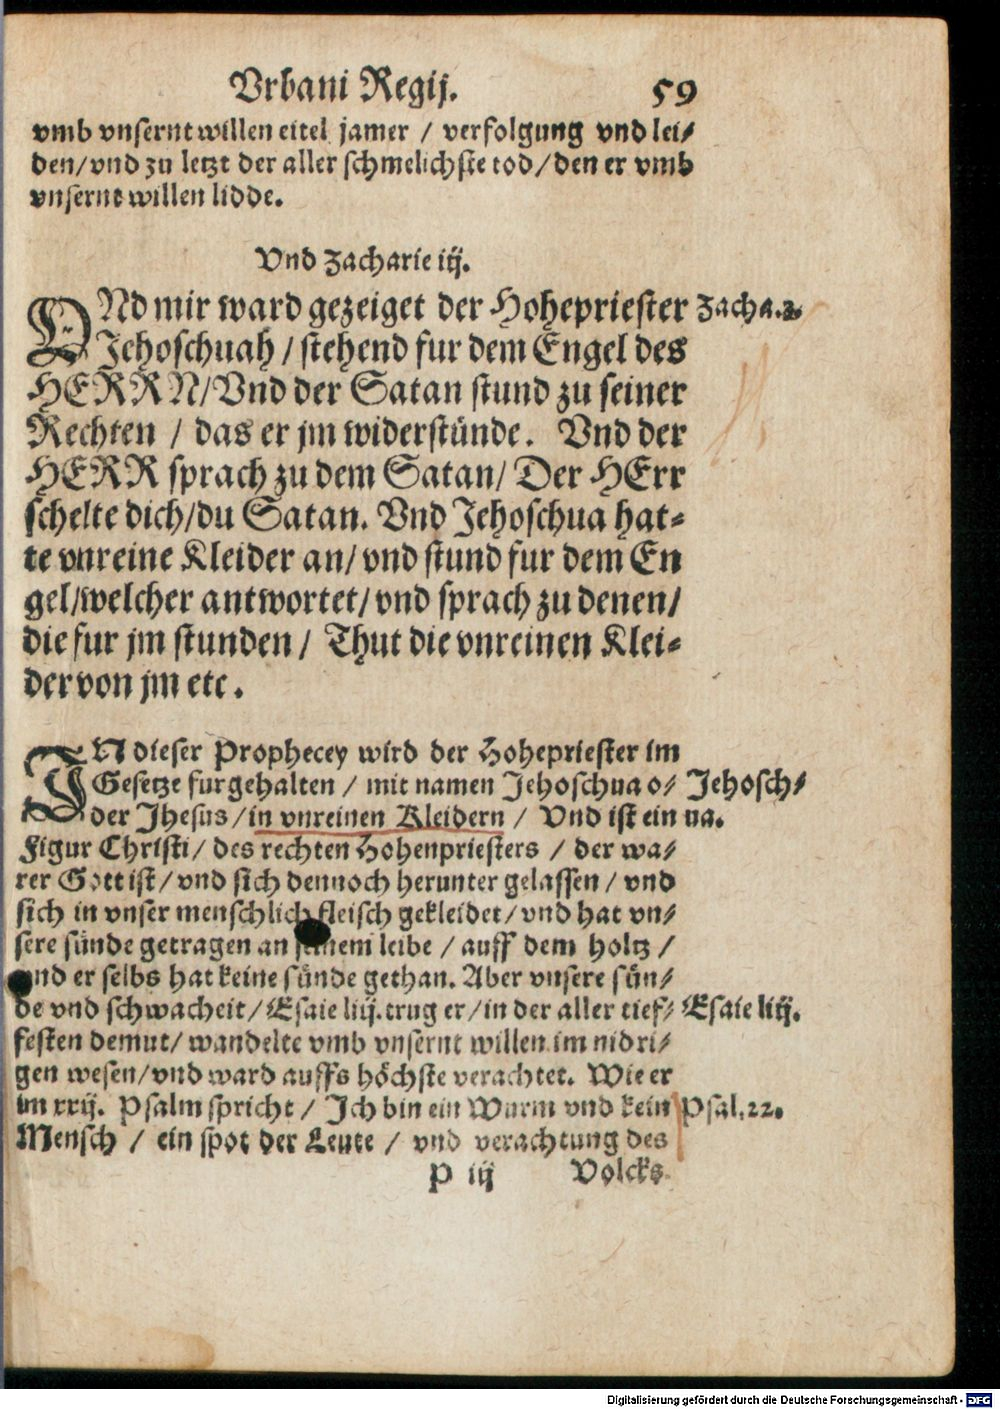 Vrbani Regij. 59
vmb vnsernt willen eitel jamer / verfolgung vnd lei-
den/vnd zu letzt der aller schmelichste tod/den er vmb
vnsernt willen lidde.
Vnd Zacharie iij.
VNd mir ward gezeiget der Hohepriester Zacha.3.
Jehoschuah / stehend fur dem Engel des
HERRN/Vnd der Satan stund zu seiner
Rechten / das er jm widerstünde. Vnd der
HERR sprach zu dem Satan/ Der HErr
schelte dich/du Satan. Vnd Jehoschua hat-
te vnreine Kleider an/ vnd stund fur dem En
gel/welcher antwortet/ vnd sprach zu denen/
die fur jm stunden / Thut die vnreinen Klei-
der von jm etc.
IN dieser Prophecey wird der Hohepriester im
Gesetze furgehalten / mit namen Jehoschua o- Jehosch-
der Jhesus /in vnreinen Kleidern / Vnd ist ein ua.
Figur Christi/ des rechten Hohenpriesters / der wa-
rer Gott ist/ vnd sich dennoch herunter gelassen / vnd
sich in vnser menschlich fleisch gekleidet/ vnd hat vn-
sere sünde getragen an seinem leibe / auff dem holtz /
vnd er selbs hat keine sünde gethan. Aber vnsere sün-
de vnd schwacheit/ Esaie liij. trug er/in der aller tief- Esaie liij.
festen demut/ wandelte vmb vnsernt willen im nidri-
gen wesen/vnd ward auffs höchste verachtet. Wie er
im xxij. Psalm spricht / Ich bin ein Wurm vnd kein Psal.22.
Mensch / ein spot der Leute / vnd verachtung des
P iij Volcks
Digitalisierung gefördert durch die Deutsche Forschungsgemeinschaft - DFG